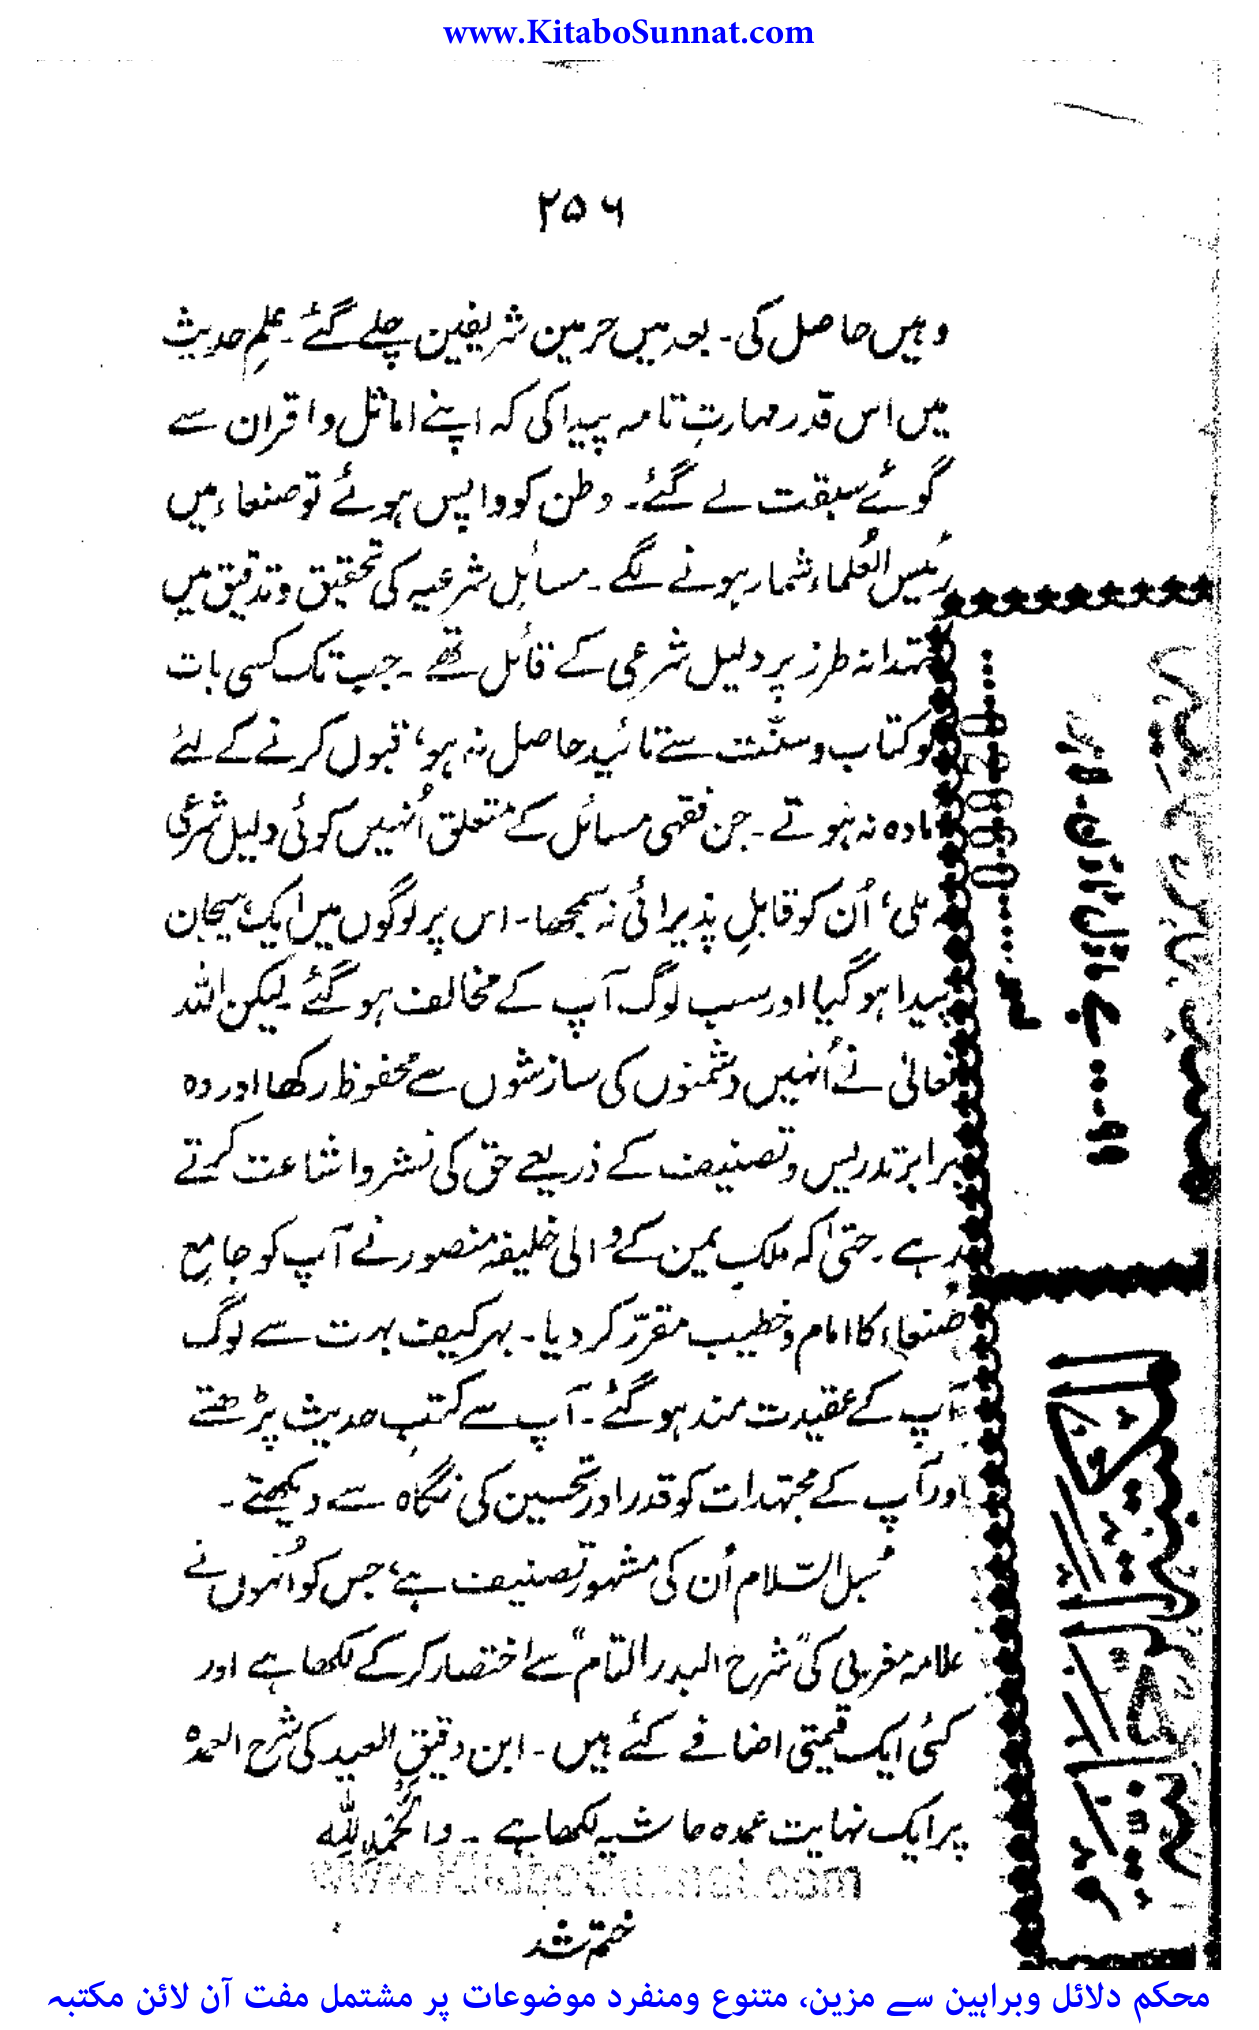 www.KitaboSunnat.com
۲۵۶
وہیں حاصل کی۔ بعد میں حرمین شریفین چلے گئے۔ علمِ حدیث
میں اس قدر مہارتِ تامہ پیدا کی کہ اپنے اماثل و اقران سے
گوئے سبقت لے گئے۔ وطن کو واپس ہوئے تو صنعاء میں
رئیس العُلماء شمار ہونے لگے۔ مسائلِ شرعیہ کی تحقیق و تدقیق میں
مجتہدانہ طرز پر دلیل شرعی کے قائل تھے۔ جب تک کسی بات
کو کتاب و سنّت سے تائید حاصل نہ ہو، قبول کرنے کے لئے
آمادہ نہ ہوتے۔ جن فقہی مسائل کے متعلق اُنہیں کوئی دلیل شرعی
نہ ملی، اُن کو قابلِ پذیرائی نہ سمجھا۔ اس پر لوگوں میں ایک ہیجان
پیدا ہو گیا اور سب لوگ آپ کے مخالف ہو گئے لیکن اللہ
تعالیٰ نے اُنہیں دشمنوں کی سازشوں سے محفوظ رکھا اور وہ
برابر تدریس و تصنیف کے ذریعے حق کی نشر و اشاعت کرتے
رہے۔ حتیٰ کہ ملک یمن کے والی خلیفہ منصور نے آپ کو جامع
صُنعاء کا امام و خطیب مقرّر کر دیا۔ بہر کیف بہت سے لوگ
آپ کے عقیدت مند ہو گئے۔ آپ سے کتب حدیث پڑھتے
اور آپ کے مجتہدات کو قدر اور تحسین کی نگاہ سے دیکھتے۔
سُبل السّلام اُن کی مشہور تصنیف ہے، جس کو اُنہوں نے
علامہ مغربی کی "شرح البدر التّام" سے اختصار کر کے لکھا ہے اور
کئی ایک قیمتی اضافے کئے ہیں۔ ابن دقیق العید کی شرح العمدہ
پر ایک نہایت عمدہ حاشیہ لکھا ہے۔ والحمدُ لِلّٰہ
www.KitaboSunnat.com
ختم شد
۹۹۔۔۔ جے ماڈل ٹاؤن۔ لاہور
محکم دلائل وبراہین سے مزین، متنوع ومنفرد موضوعات پر مشتمل مفت آن لائن مکتبہ